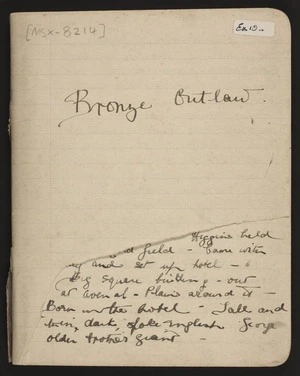 [MSX-8214]
Ex 13..
Bronze Outlaw.
Higgins held
d field - Came with
and set up hotel -
Big square building - out
at avenal - Plain around it -
Born in the hotel - Tall and
thin, dark, spoke English George
older brother giant -